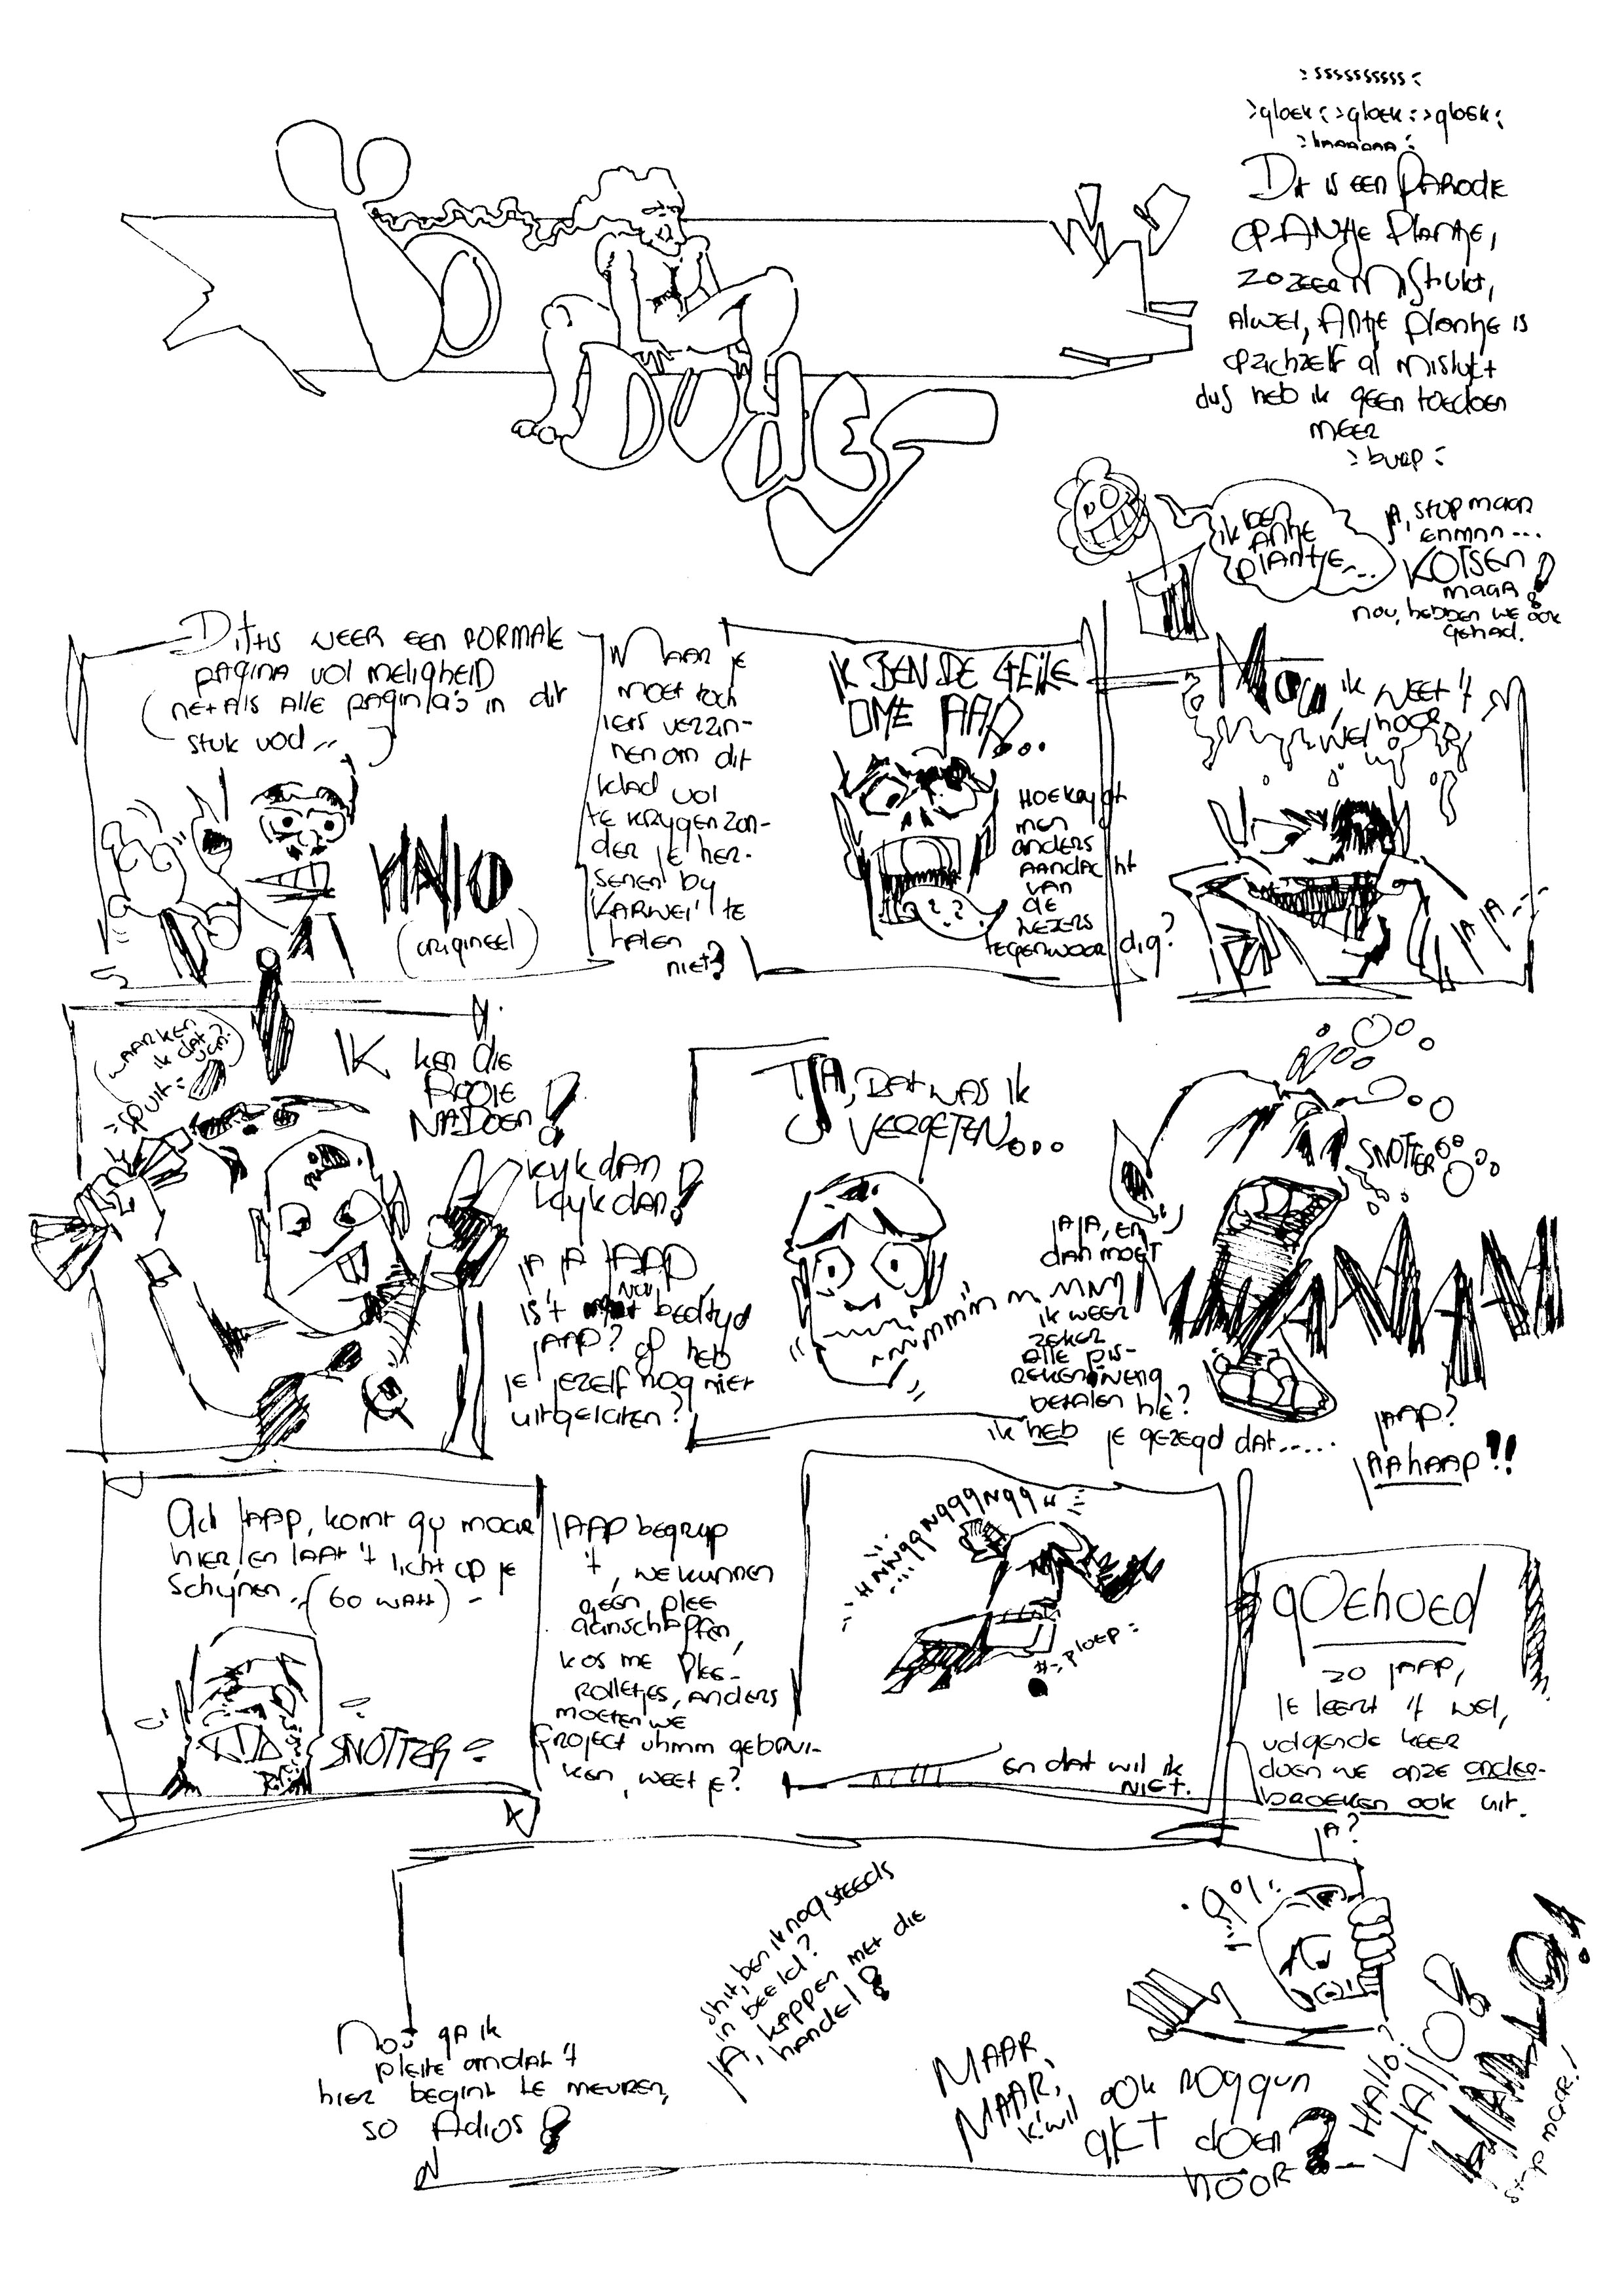 :sssssssssss:
:gloek::gloek::gloek:
:haaaaaa:
Dit is een Parodie
op Antje Plantje,
zozeer mislukt,
alwel, Antje Plantje is
opzichzelf al mislukt
dus heb ik geen toedoen
meer
:burp:
ik ben
Antje
Plantje...
ja, stop maar
enmnn...
KOTSEN
maar!
nou, hebben we ook
gehad.
Dit is weer een normale
pagina vol meligheid
(net als alle pagina's in dit
stuk vod...)
HALLO
(origineel)
Maar je
moet toch
iets verzin-
nen om dit
klad vol
te krygen zon-
der je her-
senen by
'Karwei' te
halen
niet?
IK BEN DE GEILE
OME JAAP...
Hoe krygt
men
anders
aandacht
van
de
lezers
tegenwoordig?
Nou, ik weet 't
wel hoor
ja ja...
(waar ken
ik dat
van?)
=spuit=
IK ken die
ROOIE
NADOEN!
kyk dan
kyk dan!
ja ja JAAP
is't nou bedtyd
JAAP? of heb
je jezelf nog niet
uitgelaten?
TJA, DAT WAS IK
VERGETEN...
mmmmmm MM
SNOTTER
jaja, en
dan moet
ik weer
zeker
alle pis-
rekeningen
betalen hè?
ik heb je gezegd dat.....
WAHAHAH
JAAP?
JAAHAAP!!
Ach Jaap, komt gy maar
hier, en laat 't licht op je
schijnen...(60 watt)-
SNOTTER=
JAAP begryp
't, we kunnen
geen plee
aanschaffen,
kos me plee-
rolletjes, anders
moeten we
Project uhmm gebrui-
ken, weet je?
=HNNggNgggNgg=
#=ploep=
en dat wil ik
NIET.
goehoed
zo JAAP,
je leert 't wel,
volgende keer
doen we onze onder-
broeken ook uit.
ja?
Nou ga ik
pleite omdat 't
hier begint te meuren,
so Adios!
shit, ben ik nog steeds
in beeld?
ja, kappen met die
handel!
MAAR,
MAAR,
k'wil ook noggun
gKT doen
hoor?
HAllo?
HAllO?
HALLO!
stop maar!